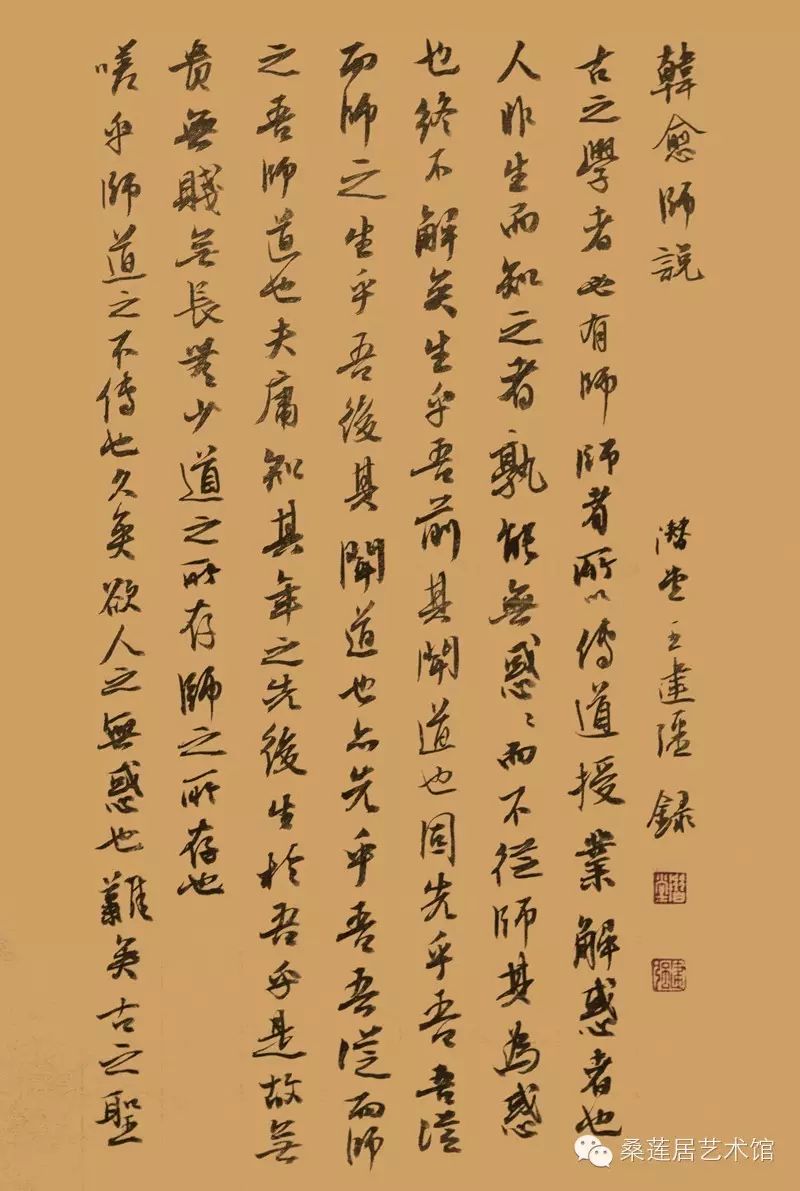 韓愈師說 潛堂王建彊録
古之學者必有師師者所以傳道授業解惑者也
人非生而知之者孰能無惑々而不從師其為惑
也終不解矣生乎吾前其聞道也固先乎吾吾從
而師之生乎吾後其聞道也亦先乎吾吾從而師
之吾師道也夫庸知其年之先後生於吾乎是故無
貴無賤無長無少道之所存師之所存也
嗟乎師道之不傳也久矣欲人之無惑也難矣古之聖
桑莲居艺术馆